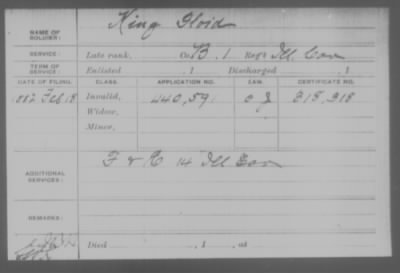 NAME OF SOLDIER: King Floid
SERVICE: Late rank, Co. B. 1 Reg't Ill Cav
TERM OF SERVICE: Enlisted , 1 Discharged , 1
DATE OF FILING. CLASS. APPLICATION NO. LAW. CERTIFICATE NO.
1882 Feb 18 Invalid, 440,591 818,918
Widow,
Minor,
ADDITIONAL SERVICES: F & C 14 Ill Cav
REMARKS:
Died , 1 , at